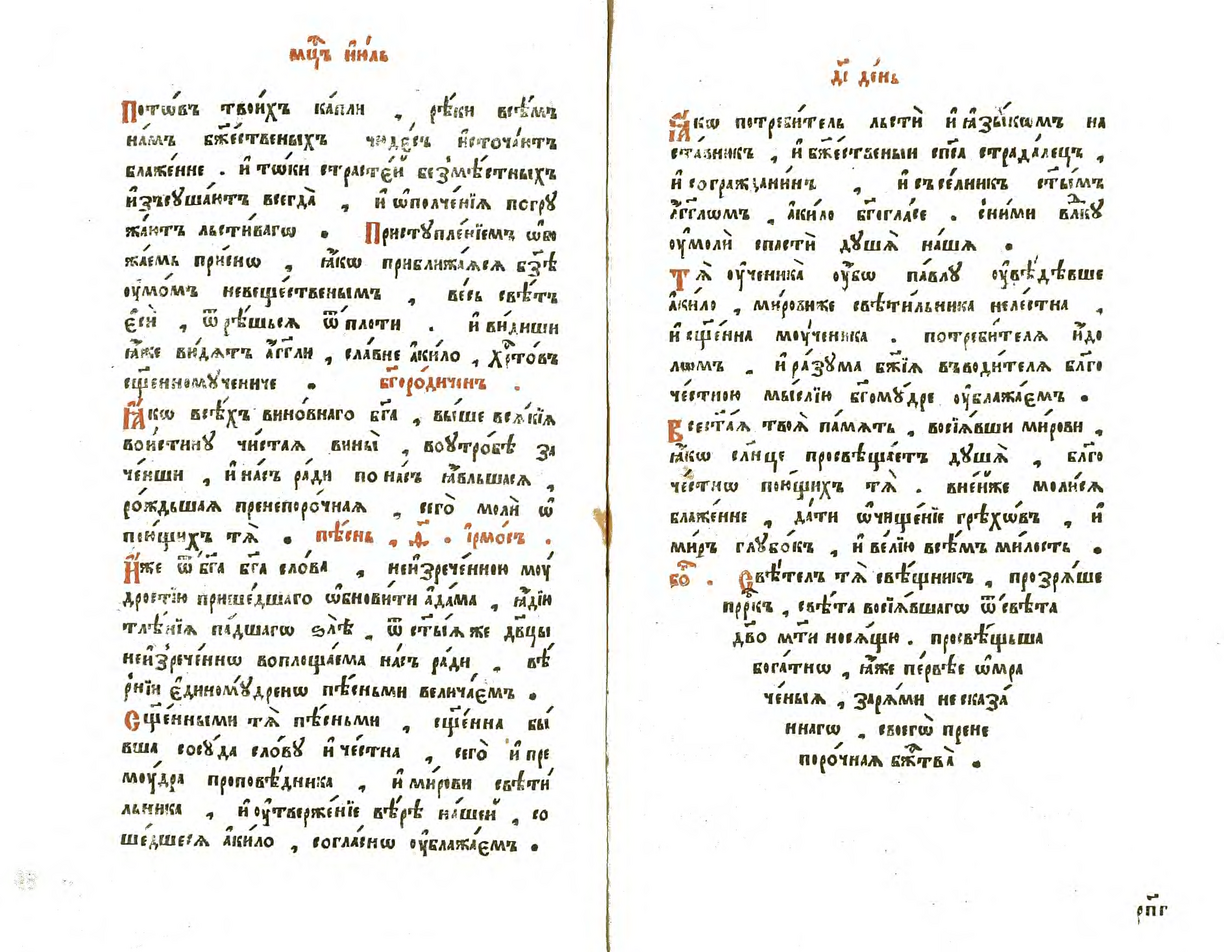 мц҃ъ і҆ю́ль
Пото́въ твои́хъ ка́пли , рѣ́ки всѣ́мъ
на́мъ бж҃е́ственыхъ чюде́съ и҆сточа́ютъ
блаже́нне . и҆ то́ки страсте́й безмѣ́стныхъ
и҆зъсуша́ютъ всегда̀ , и҆ ѡ҆полче́нїѧ погру
жа́ютъ льсти́вагѡ . Приступле́нїемъ ѡ҆бо
жа́емь при́снѡ , ꙗ҆́кѡ приближа́ѧсѧ бз҃ѣ
ᲂу҆мо́мъ невеще́ственымъ , ве́сь свѣ́тъ
є҆сѝ , ѿрѣ́шьсѧ ѿ пло́ти . и҆ ви́диши
ꙗ҆́же ви́дѧтъ а҆́гг҃ли , сла́вне а҆ки́ло , хрⷭ҇то́въ
сщ҃енномꙋ́чениче . бг҃оро́диченъ .
Ꙗ҆́кѡ всѣ́хъ вино́внаго бг҃а , вы́ше всѧ́кїѧ
вои́стинꙋ чи́стаѧ вины̀ , воᲂутро́бѣ за
че́нши , и҆ на́съ ра́ди по на́съ ꙗ҆́вльшасѧ ,
ро́ждьшаѧ пренепоро́чнаѧ , сего̀ молѝ ѡ҆
пою́щихъ тѧ̀ . пѣ́снь , д҃ . і҆рмо́съ .
И҆́же ѿ бг҃а бг҃а сло́ва , неи҆зрече́нною мᲂу́
дростїю прише́дшаго ѡ҆бнови́ти а҆да́ма , ꙗ҆́дїю
тлѣ́нїѧ па́дшагѡ ѕлѣ̀ , ѿ ст҃ы́ѧ же дв҃цы
неи҆зрече́ннѡ воплоща́ема на́съ ра́ди , вѣ́
рнїи є҆диномꙋ́дренѡ пѣ́сньми велича́емъ .
Сщ҃е́нными тѧ̀ пѣ́сньми , сщ҃е́нна бы́
вша сосꙋ́да сло́вꙋ и҆ че́стна , сего̀ и҆ пре
мᲂу́дра проповѣ́дника , и҆ ми́рови свѣти́
льника , и҆ ᲂу҆твержде́нїе вѣ́рѣ на́шей , со
ше́дшесѧ а҆ки́ло , согла́снѡ ᲂу҆блажа́емъ .
д҃і де́нь
Ꙗ҆́кѡ потреби́тель льстѝ и҆ ꙗ҆зы́комъ на
ста́вникъ , и҆ бж҃е́ственыи сп҃са страда́лецъ ,
и҆ согражда́нинъ , и҆ съсе́лникъ ст҃ы́мъ
а҆́гг҃ломъ , а҆ки́ло бг҃огла́се . сни́ми влⷣкꙋ
ᲂу҆молѝ спастѝ дꙋшѧ̀ на́шѧ .
Тѧ̀ ᲂу҆ченика̀ ᲂу҆́бѡ па́влꙋ ᲂу҆вѣ́дѣвше
а҆ки́ло , ми́ровиже свѣти́льника неле́стна ,
и҆ сщ҃е́нна мᲂу́ченика . потреби́телѧ и҆́до
ломъ . и҆ ра́зꙋма бж҃їѧ въводи́телѧ бл҃го
че́стною мы́слїю бг҃омꙋ́дре ᲂу҆блажа́емъ .
Всест҃а́ѧ твоѧ̀ па́мѧть , восїѧ́вши ми́рови ,
ꙗ҆́кѡ сл҃нце просвѣща́етъ дꙋшѧ̀ , бл҃го
че́стнѡ пою́щихъ тѧ̀ . вне́йже моли́сѧ
блаже́нне , да́ти ѡ҆чище́нїе грѣхо́въ , и҆
ми́ръ глꙋбо́къ , и҆ ве́лїю всѣ́мъ ми́лость .
боⷢ҇ . Свѣ́телъ тѧ̀ свѣ́щникъ , прозрѧ́ше
прⷪ҇ркъ , свѣ́та восїѧ́вшагѡ ѿ свѣ́та
дв҃о мт҃и носѧ́щю . просвѣ́щьша
бога́тнѡ , ꙗ҆́же пе́рвѣе ѡ҆мра
че́ныѧ , зарѧ́ми несказа́
ннагѡ , своегѡ̀ прене
поро́чнаѧ бжⷭ҇тва̀ .
рп҃г